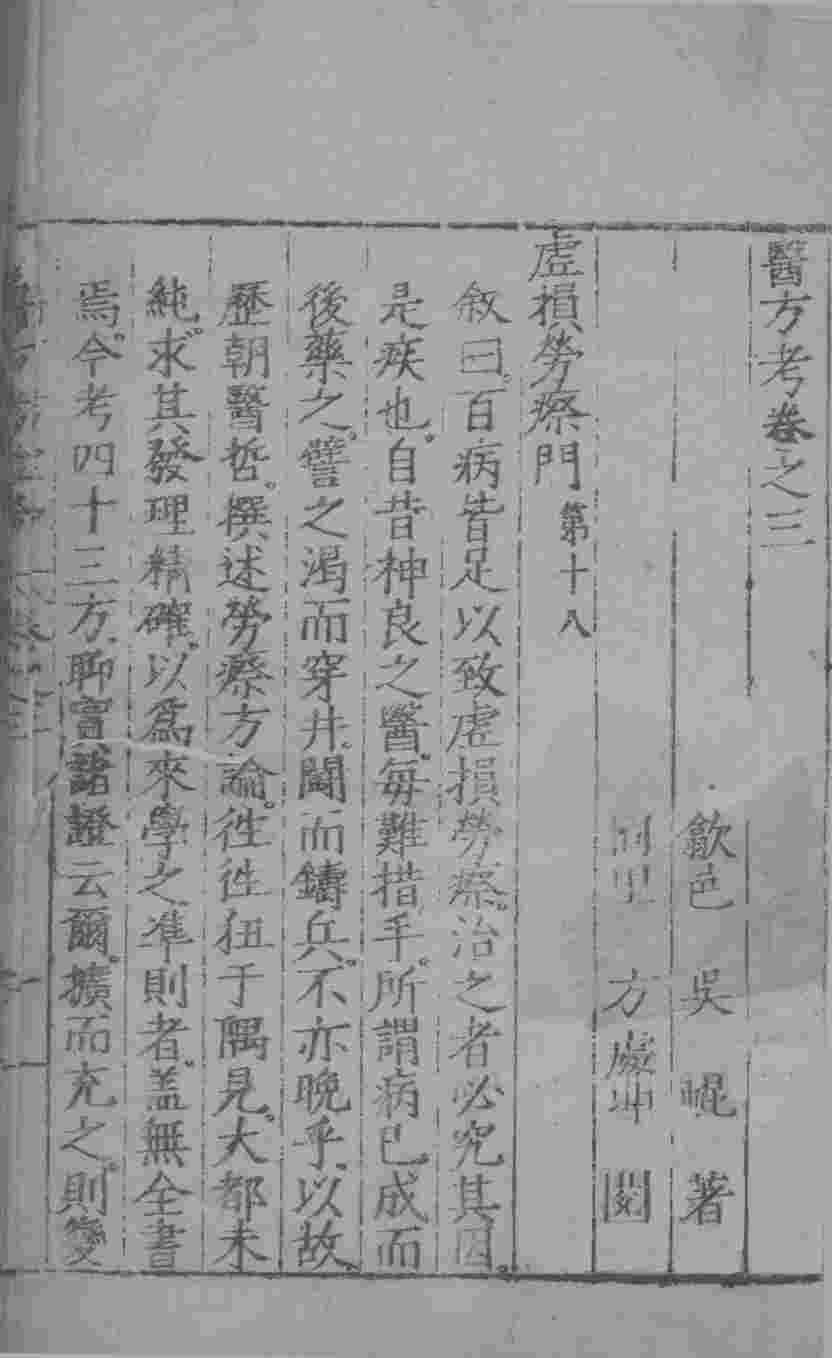 醫方考卷之三
歙邑 吳 崐 著
同里 方處坤 閱
虛損勞瘵門 第十八
敘曰。百病皆足以致虛損勞瘵。治之者必究其因。
是疾也。自昔神良之醫。每難措手。所謂病已成而
後藥之。譬之渴而穿井。鬬而鑄兵。不亦晚乎。以故
歷朝醫哲。撰述勞瘵方論。徃徃扭于隅見。大都未
純。求其發理精確。以爲來學之準則者。蓋無全書
焉。今考四十三方。聊寘諸證云爾。擴而充之。則變